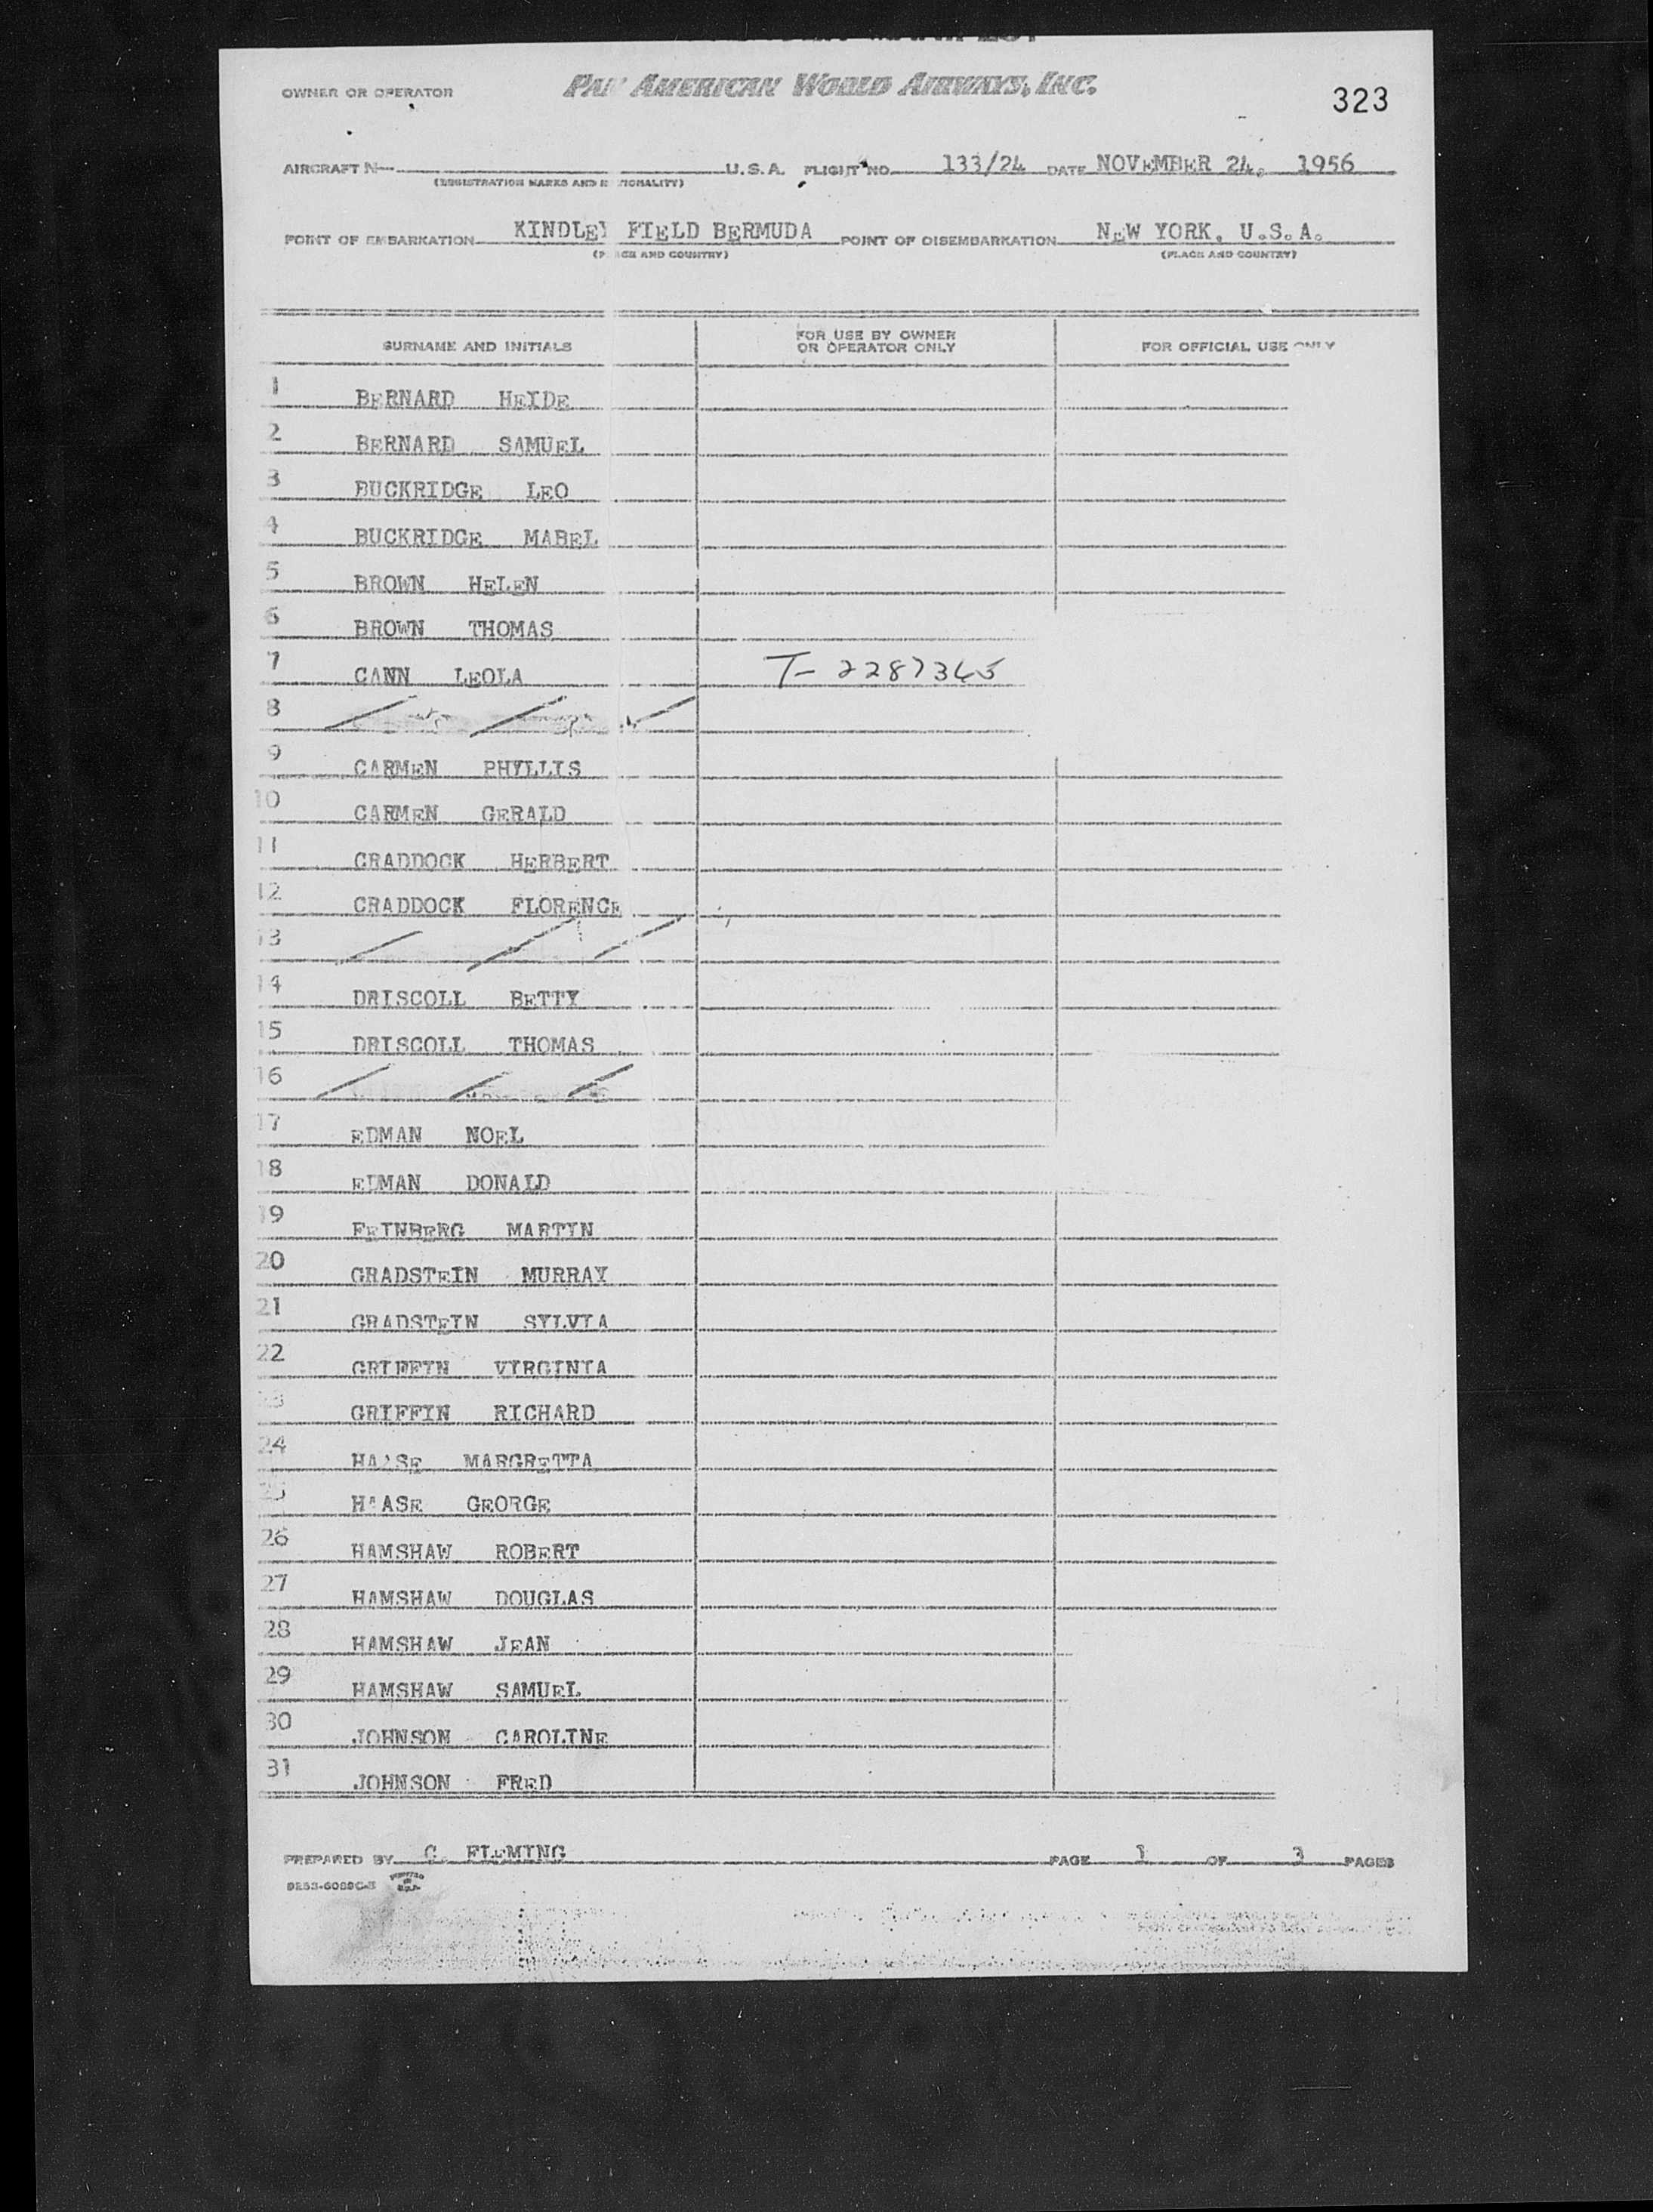 OWNER OR OPERATOR PAN AMERICAN WORLD AIRWAYS, INC. 323
AIRCRAFT N U.S.A. FLIGHT NO. 133/24 DATE NOVEMBER 24, 1956
(REGISTRATION MARKS AND NATIONALITY)
POINT OF EMBARKATION KINDLEY FIELD BERMUDA POINT OF DISEMBARKATION NEW YORK, U.S.A.
(PLACE AND COUNTRY) (PLACE AND COUNTRY)
SURNAME AND INITIALS FOR USE BY OWNER OR OPERATOR ONLY FOR OFFICIAL USE ONLY
1 BERNARD HEIDE
2 BERNARD SAMUEL
3 BUCKRIDGE LEO
4 BUCKRIDGE MABEL
5 BROWN HELEN
6 BROWN THOMAS
7 CANN LEOLA T-2287365
8
9 CARMEN PHYLLIS
10 CARMEN GERALD
11 CRADDOCK HERBERT
12 CRADDOCK FLORENCE
13
14 DRISCOLL BETTY
15 DRISCOLL THOMAS
16
17 EDMAN NOEL
18 EDMAN DONALD
19 FEINBERG MARTIN
20 GRADSTEIN MURRAY
21 GRADSTEIN SYLVIA
22 GRIFFIN VIRGINIA
23 GRIFFIN RICHARD
24 HAASE MARGRETTA
25 HAASE GEORGE
26 HAMSHAW ROBERT
27 HAMSHAW DOUGLAS
28 HAMSHAW JEAN
29 HAMSHAW SAMUEL
30 JOHNSON CAROLINE
31 JOHNSON FRED
PREPARED BY C. FLEMING PAGE 1 OF 3 PAGES
PRINTED IN U.S.A.